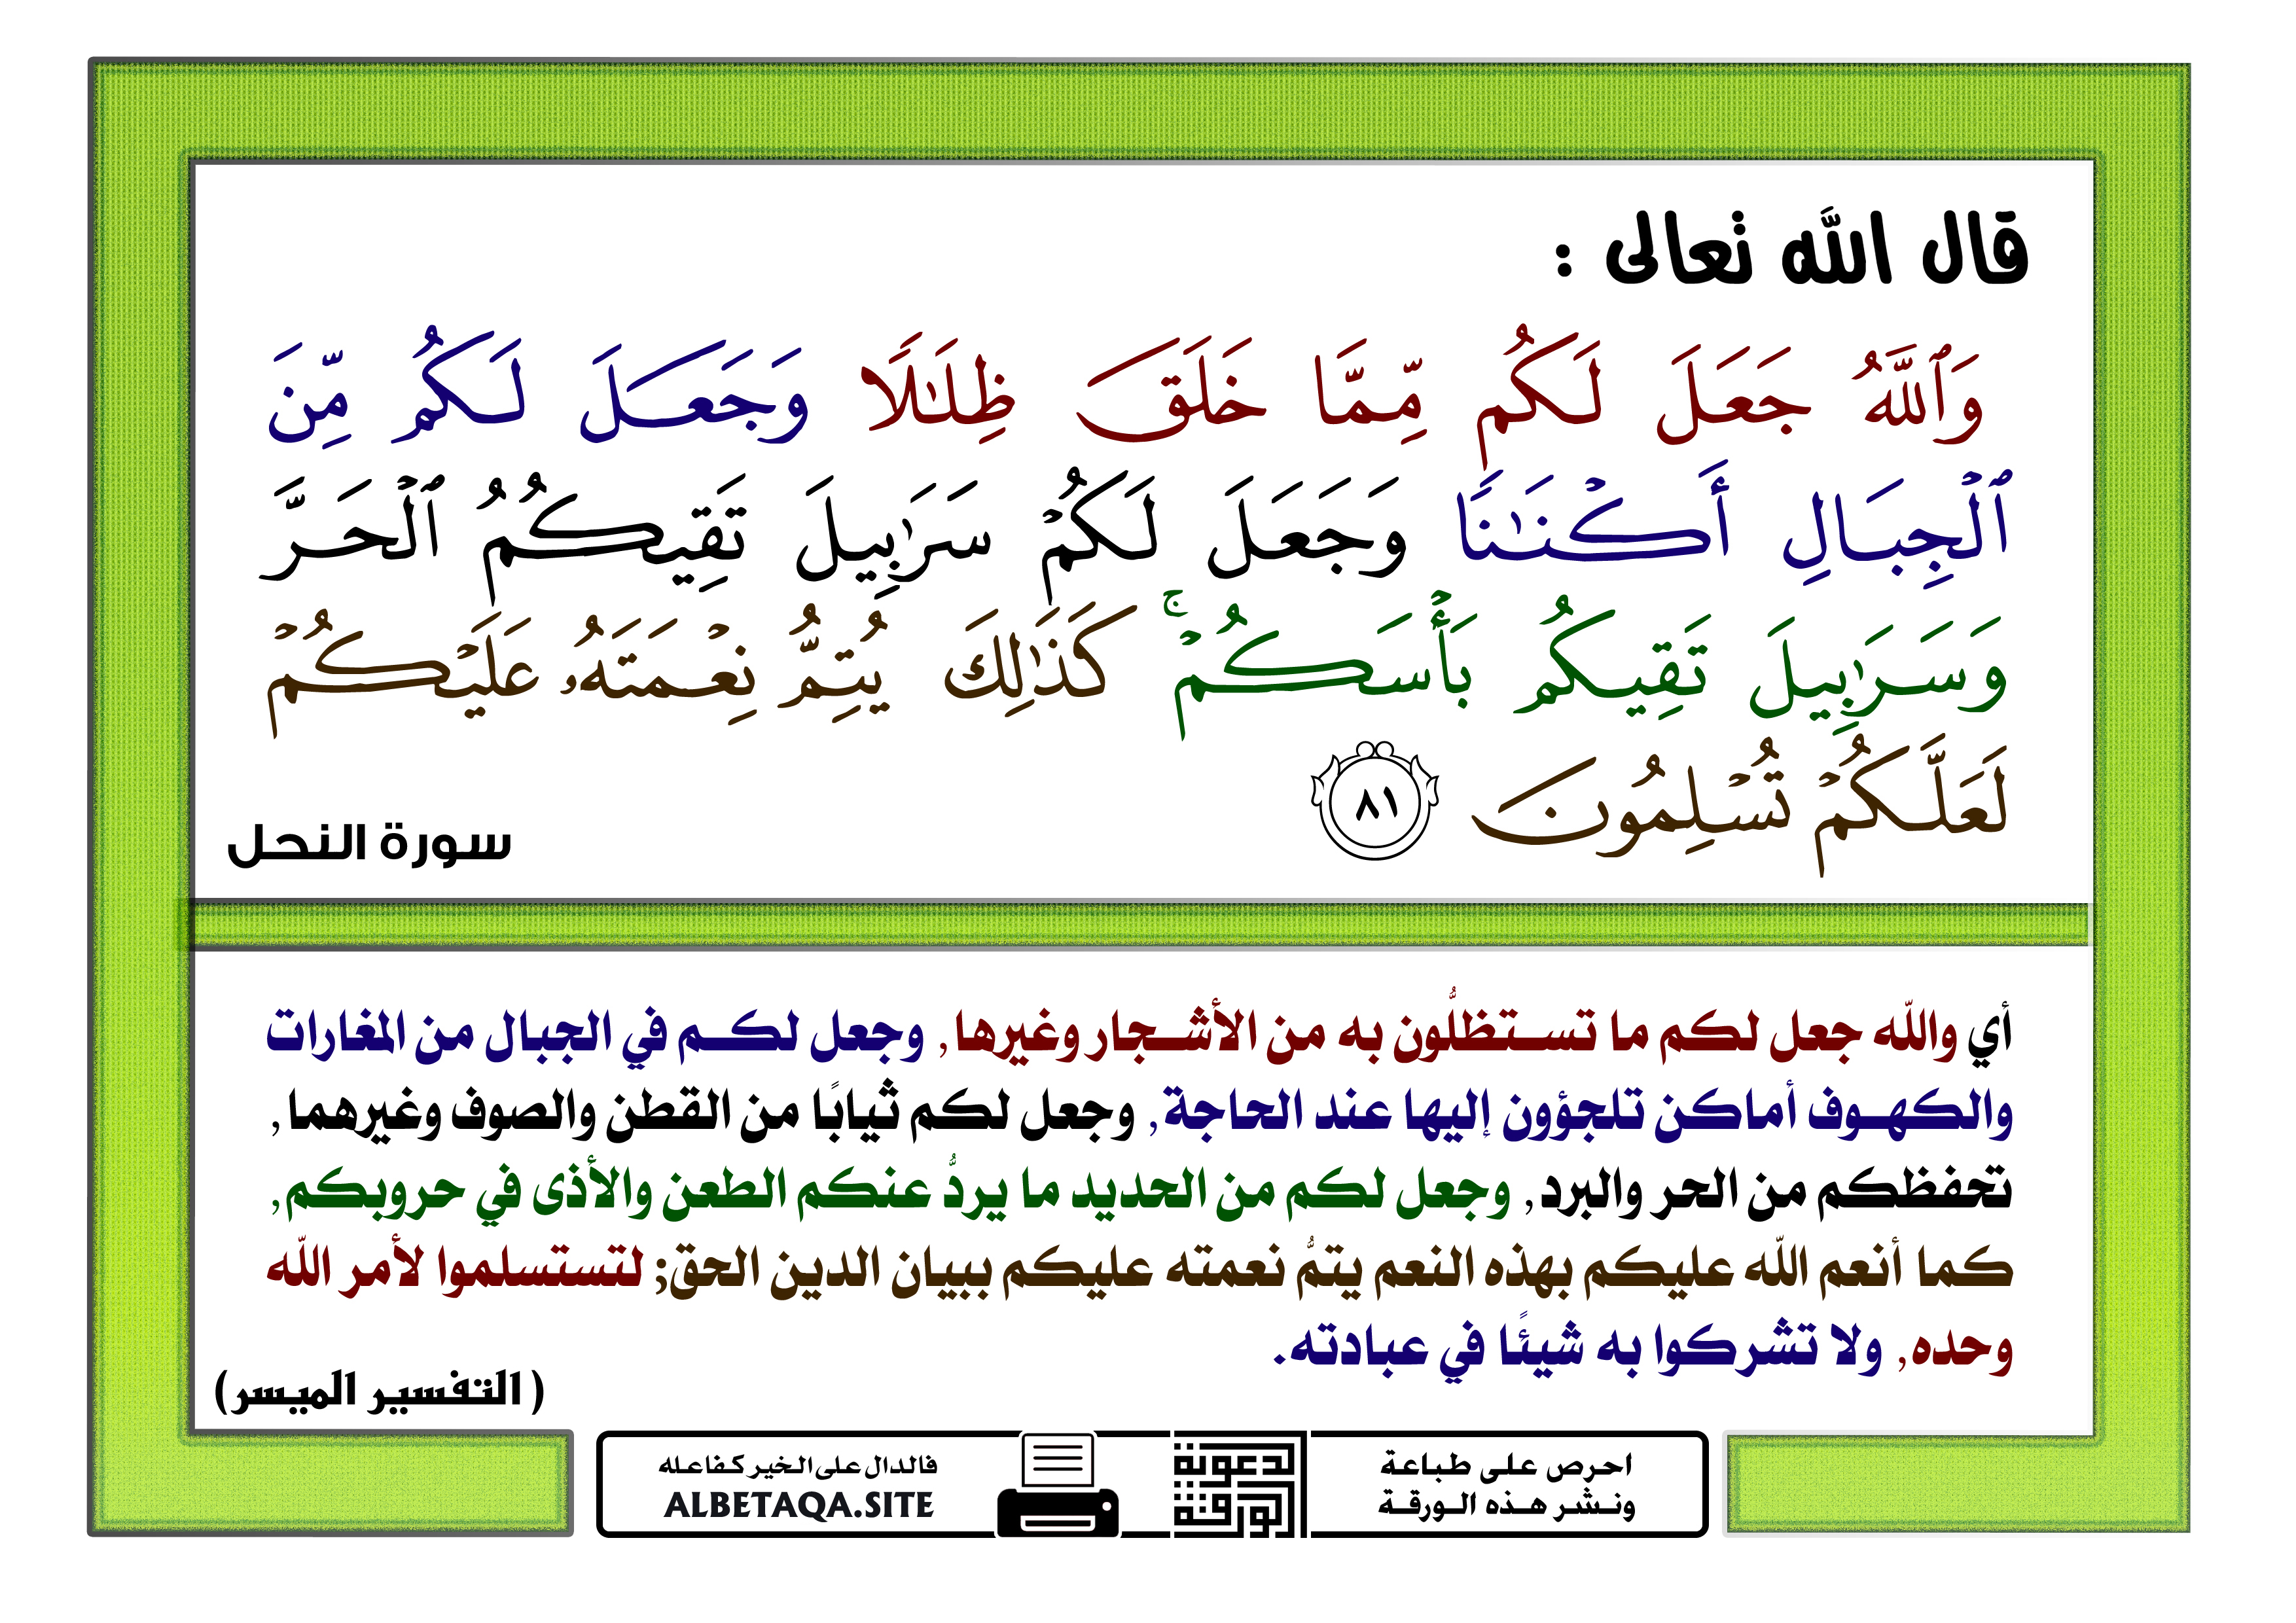 قال الله تعالى :
وَٱللَّهُ جَعَلَ لَكُم مِّمَّا خَلَقَ ظِلَٰلًا وَجَعَلَ لَكُم مِّنَ
ٱلْجِبَالِ أَكْنَٰنًا وَجَعَلَ لَكُمْ سَرَٰبِيلَ تَقِيكُمُ ٱلْحَرَّ
وَسَرَٰبِيلَ تَقِيكُم بَأْسَكُمْ ۚ كَذَٰلِكَ يُتِمُّ نِعْمَتَهُۥ عَلَيْكُمْ
لَعَلَّكُمْ تُسْلِمُونَ ٨١
سورة النحل
أي والله جعل لكم ما تستظلُّون به من الأشجار وغيرها, وجعل لكم في الجبال من المغارات
والكهوف أماكن تلجؤون إليها عند الحاجة, وجعل لكم ثيابًا من القطن والصوف وغيرهما,
تحفظكم من الحر والبرد, وجعل لكم من الحديد ما يردُّ عنكم الطعن والأذى في حروبكم,
كما أنعم الله عليكم بهذه النعم يتمُّ نعمته عليكم ببيان الدين الحق; لتستسلموا لأمر الله
وحده, ولا تشركوا به شيئًا في عبادته.
( التفسير الميسر)
احرص على طباعة
ونشر هذه الورقة
لدعوتة
الورقة
فالدال على الخير كفاعله
ALBETAQA.SITE